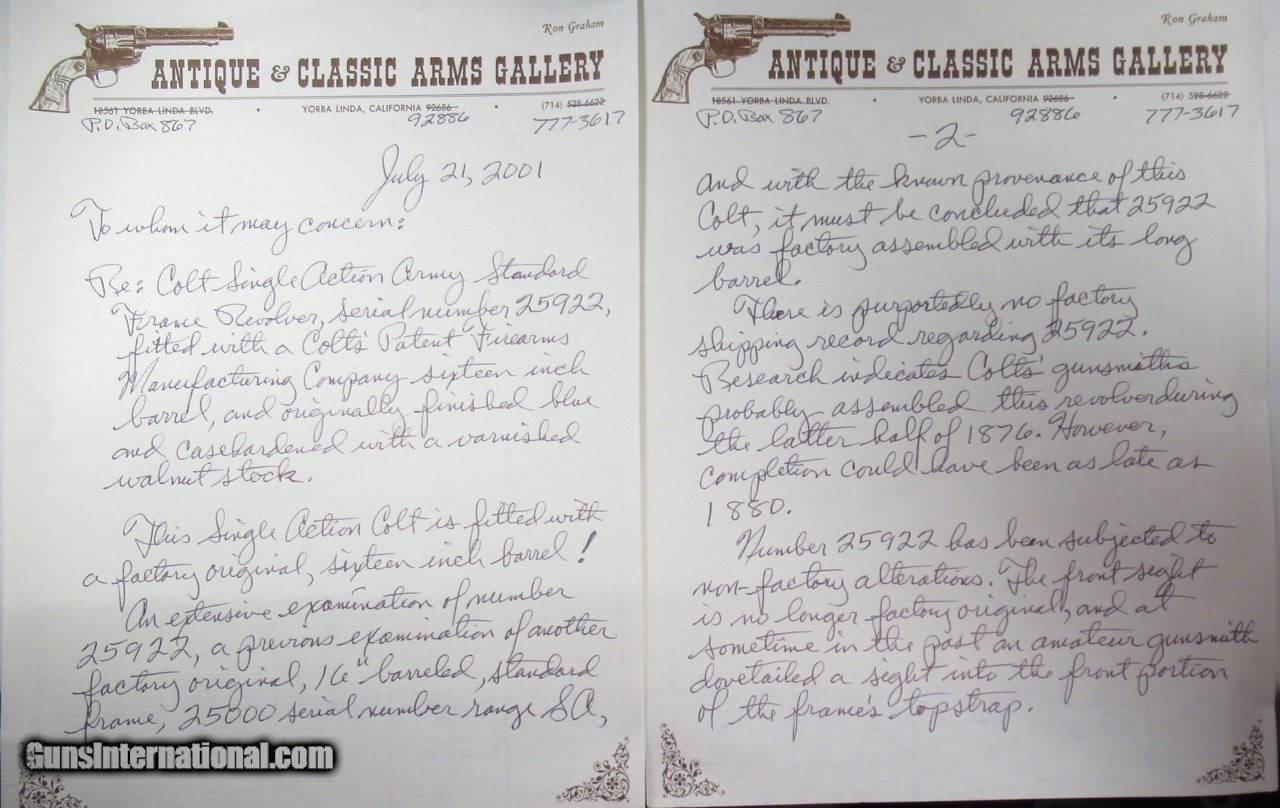 Ron Graham
ANTIQUE & CLASSIC ARMS GALLERY
18561 YORBA LINDA BLVD. • YORBA LINDA, CALIFORNIA 92686 • (714) 528-6622
P.O. Box 867 92886 777-3617
July 21, 2001
To whom it may concern:
Re: Colt Single Action Army Standard
Frame Revolver, serial number 25922,
fitted with a Colt's Patent Firearms
Manufacturing Company sixteen inch
barrel, and originally finished blue
and casehardened with a varnished
walnut stock.
This Single Action Colt is fitted with
a factory original, sixteen inch barrel!
An extensive examination of number
25922, a previous examination of another
factory original, 16" barreled, standard
frame, 25000 serial number range SA,
Ron Graham
ANTIQUE & CLASSIC ARMS GALLERY
18561 YORBA LINDA BLVD. • YORBA LINDA, CALIFORNIA 92686 • (714) 528-6622
P.O. Box 867 92886 777-3617
-2-
and with the known provenance of this
Colt, it must be concluded that 25922
was factory assembled with its long
barrel.
There is purportedly no factory
shipping record regarding 25922.
Research indicates Colts' gunsmiths
probably assembled this revolver during
the latter half of 1876. However,
completion could have been as late as
1880.
Number 25922 has been subjected to
non-factory alterations. The front sight
is no longer factory original, and at
sometime in the past an amateur gunsmith
dovetailed a sight into the front portion
of the frame's topstrap.
GunsInternational.com